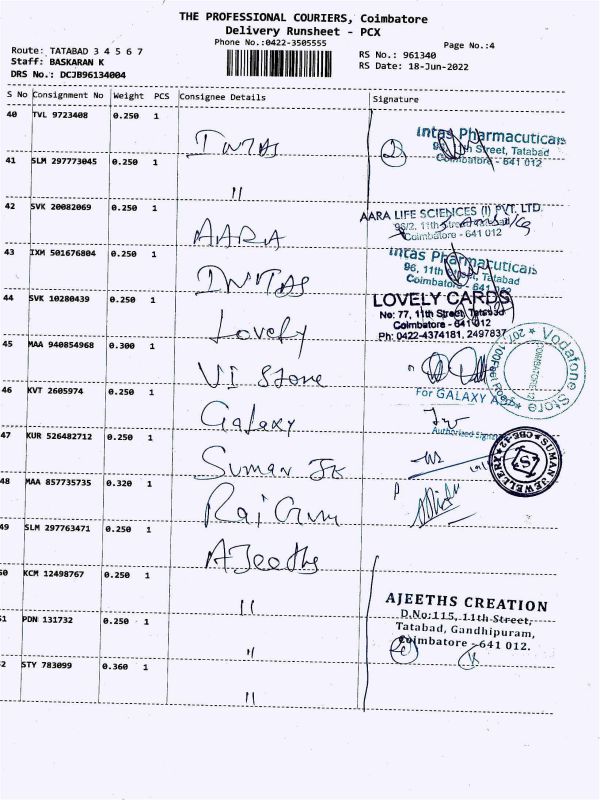 THE PROFESSIONAL COURIERS, Coimbatore
Delivery Runsheet - PCX
Phone No.:0422-3505555
Page No.:4
Route: TATABAD 3 4 5 6 7
RS No.: 961340
Staff: BASKARAN K
RS Date: 18-Jun-2022
DRS No.: DCJB96134004
S No Consignment No Weight PCS Consignee Details Signature
40 TVL 9723408 0.250 1 INTAS
Intas Pharmacuticals
96, 11th Street, Tatabad
Coimbatore - 641 012
41 SLM 297773045 0.250 1 "
42 SVK 20082069 0.250 1 AARA
AARA LIFE SCIENCES (I) PVT. LTD.
96/2, 11th Street
Coimbatore - 641 012
43 IXM 501676804 0.250 1 INTAS
Intas Pharmacuticals
96, 11th Street, Tatabad
Coimbatore - 641
44 SVK 10280439 0.250 1 Lovely
LOVELY CARDS
No: 77, 11th Street, Tatabad
Coimbatore - 641 012
Ph: 0422-4374181, 2497837
45 MAA 940854968 0.300 1 VI Store
Vodafone Store
COIMBATORE-12
For GALAXY
46 KVT 2605974 0.250 1 Galaxy
Authorised
47 KUR 526482712 0.250 1 Suman
SUMAN JEWELLERY CBE-12
48 MAA 857735735 0.320 1
49 SLM 297763471 0.250 1 AJeeths
50 KCM 12498767 0.250 1 "
AJEETHS CREATION
D.No:115, 11th Street,
Tatabad, Gandhipuram,
Coimbatore - 641 012.
51 PDN 131732 0.250 1 "
52 STY 783099 0.360 1 "